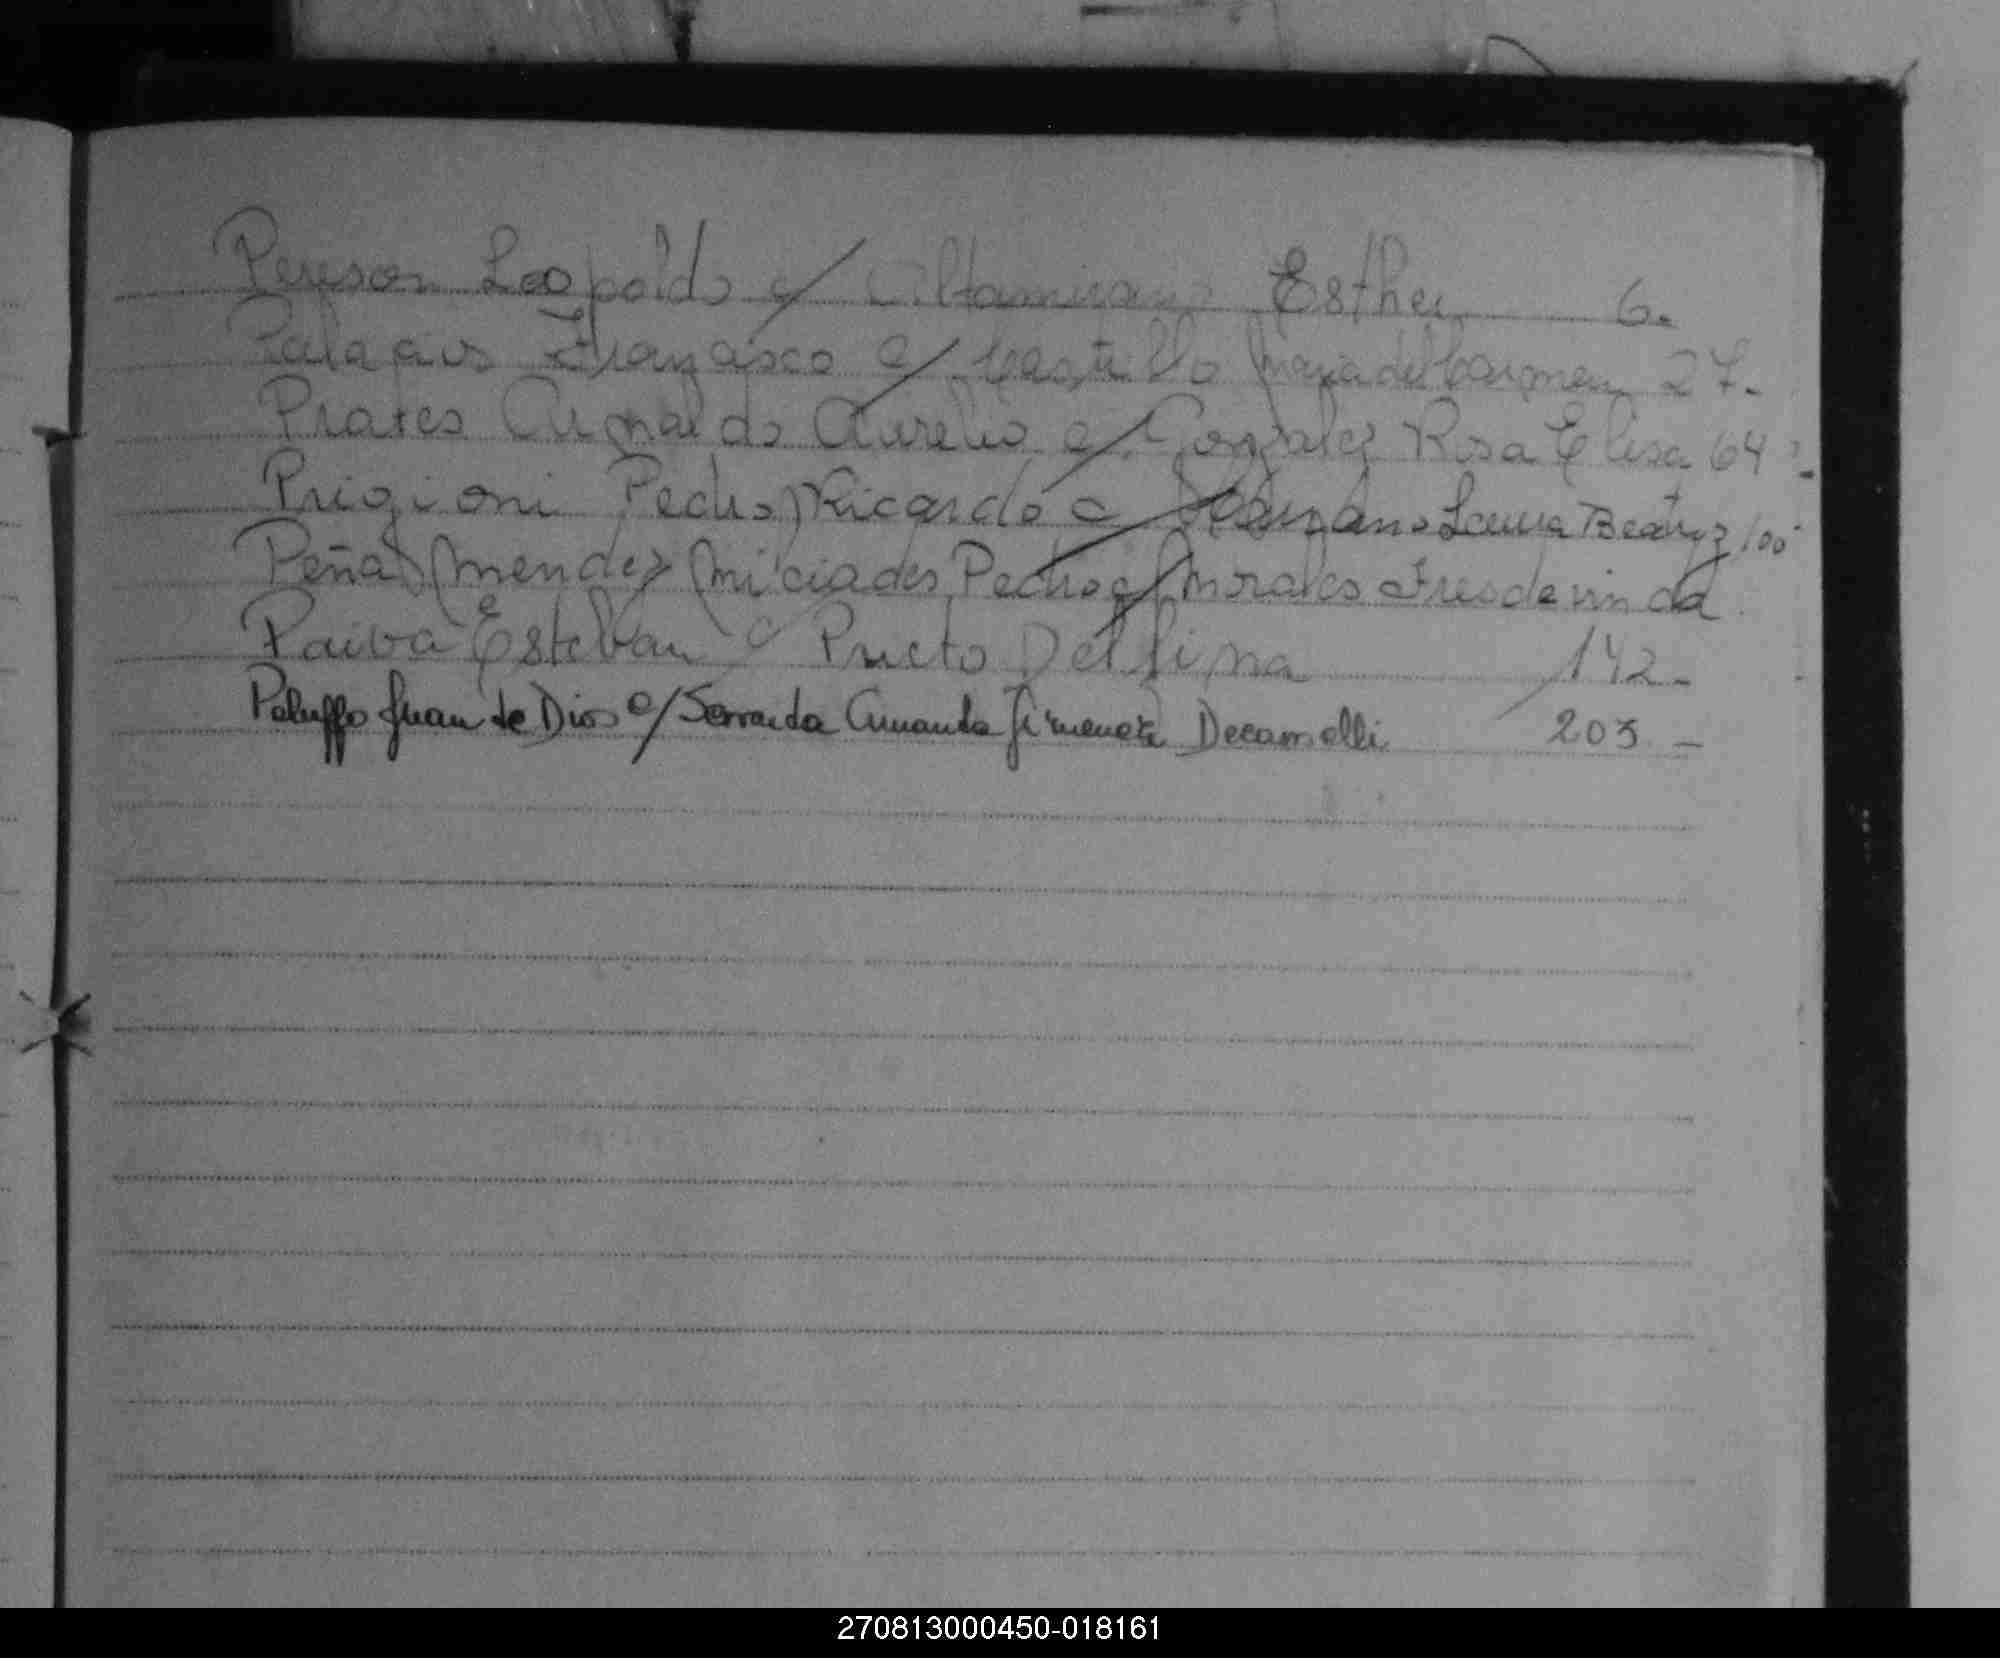 Pereson Leopoldo c/ Altamirano Esther 6.
Palacios c/ Castillo Maria del Carmen 27.
Prates Arnaldo Aurelio c/ Gonzalez Rosa Elisa 64
Prigioni Pedro Ricardo c Laura Beatriz 100
Peña Mendez Milciades Pedro c/ Morales Fresdevinda
Paiva Esteban c Prieto Delfina 142-
Peluffo Juan de Dios c/ Amanda Jimenez 203-
270813000450-018161